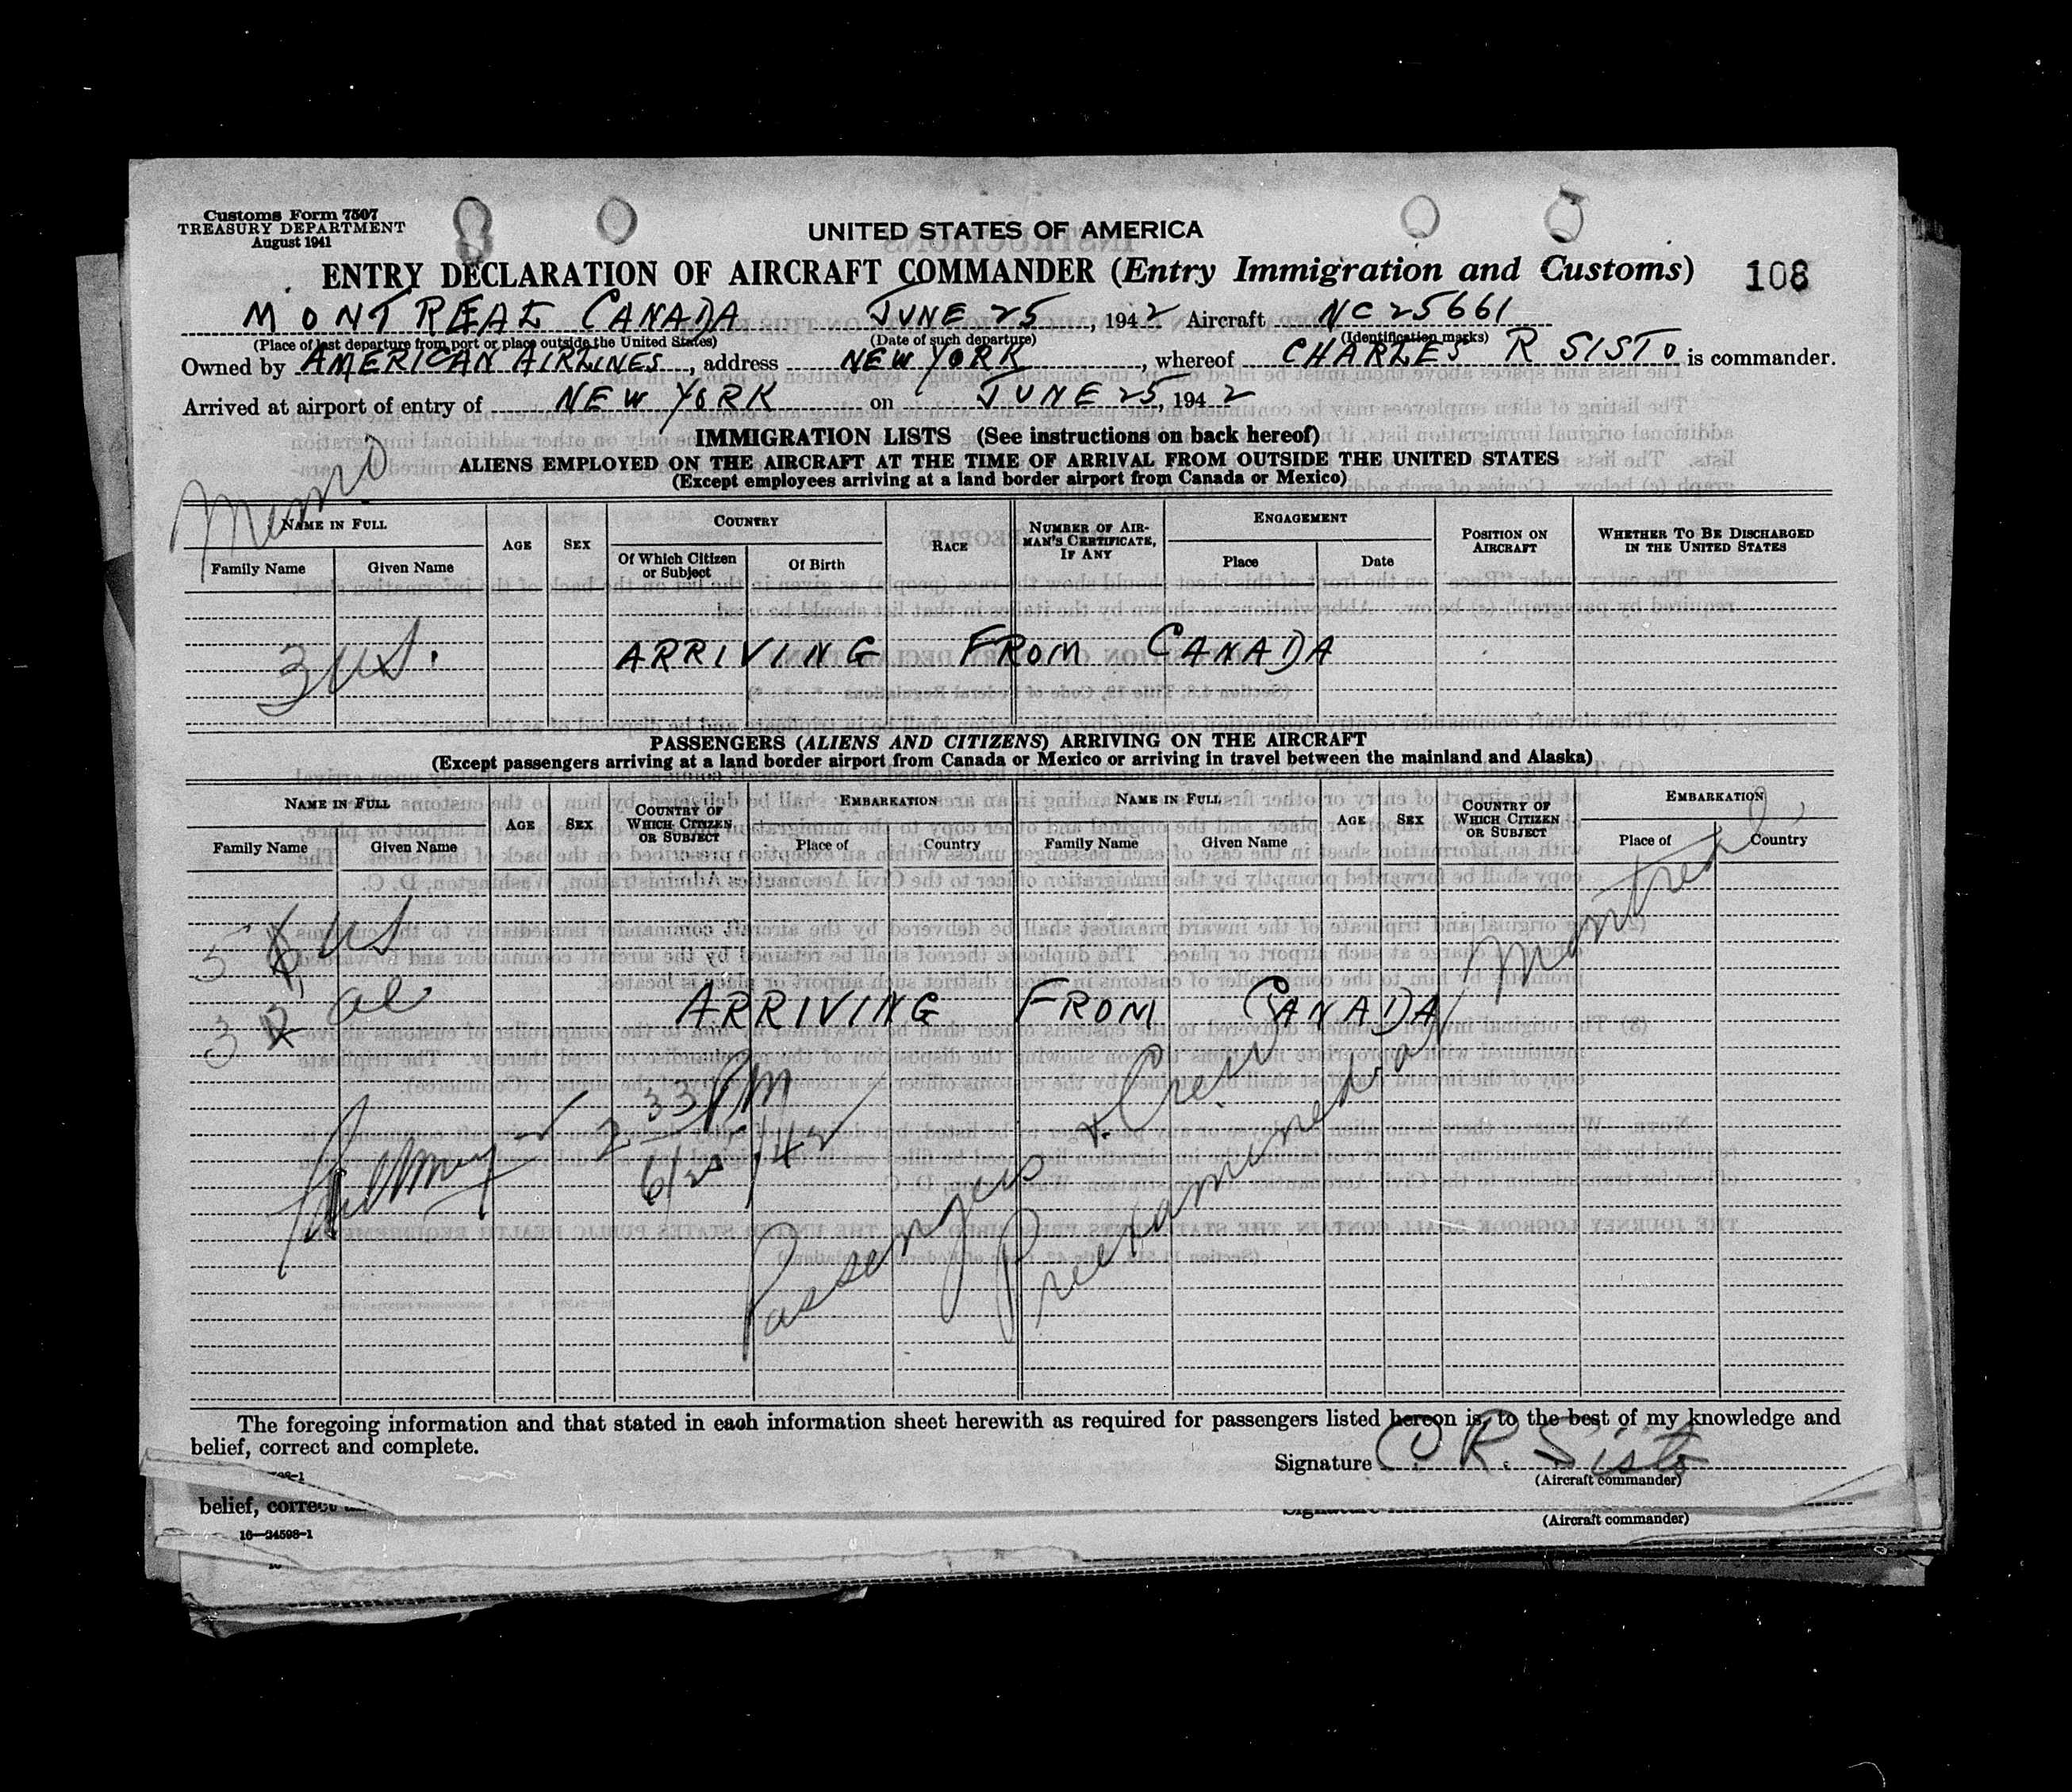 Customs Form 7507
TREASURY DEPARTMENT
August 1941
UNITED STATES OF AMERICA
ENTRY DECLARATION OF AIRCRAFT COMMANDER (Entry Immigration and Customs)
108
MONTREAL CANADA JUNE 25, 1942 Aircraft NC25661
(Place of last departure from port or place outside the United States) (Date of such departure) (Identification marks)
Owned by AMERICAN AIRLINES, address NEW YORK, whereof CHARLES R SISTO is commander.
Arrived at airport of entry of NEW YORK on JUNE 25, 1942
IMMIGRATION LISTS (See instructions on back hereof)
ALIENS EMPLOYED ON THE AIRCRAFT AT THE TIME OF ARRIVAL FROM OUTSIDE THE UNITED STATES
(Except employees arriving at a land border airport from Canada or Mexico)
Memo
NAME IN FULL AGE SEX COUNTRY RACE NUMBER OF AIRMAN'S CERTIFICATE, IF ANY ENGAGEMENT POSITION ON AIRCRAFT WHETHER TO BE DISCHARGED IN THE UNITED STATES
Family Name Given Name Of Which Citizen or Subject Of Birth Place Date
3 US. ARRIVING FROM CANADA
PASSENGERS (ALIENS AND CITIZENS) ARRIVING ON THE AIRCRAFT
(Except passengers arriving at a land border airport from Canada or Mexico or arriving in travel between the mainland and Alaska)
NAME IN FULL AGE SEX COUNTRY OF WHICH CITIZEN OR SUBJECT EMBARKATION NAME IN FULL AGE SEX COUNTRY OF WHICH CITIZEN OR SUBJECT EMBARKATION
Family Name Given Name Place of Country Family Name Given Name Place of Country
5 US
3 al
ARRIVING FROM CANADA
2 33 PM
6/25/42
Passengers & Crew
Preexamined at Montreal
The foregoing information and that stated in each information sheet herewith as required for passengers listed hereon is, to the best of my knowledge and
belief, correct and complete.
Signature C. R. Sisto
(Aircraft commander)
belief, correct
(Aircraft commander)
16—24598-1